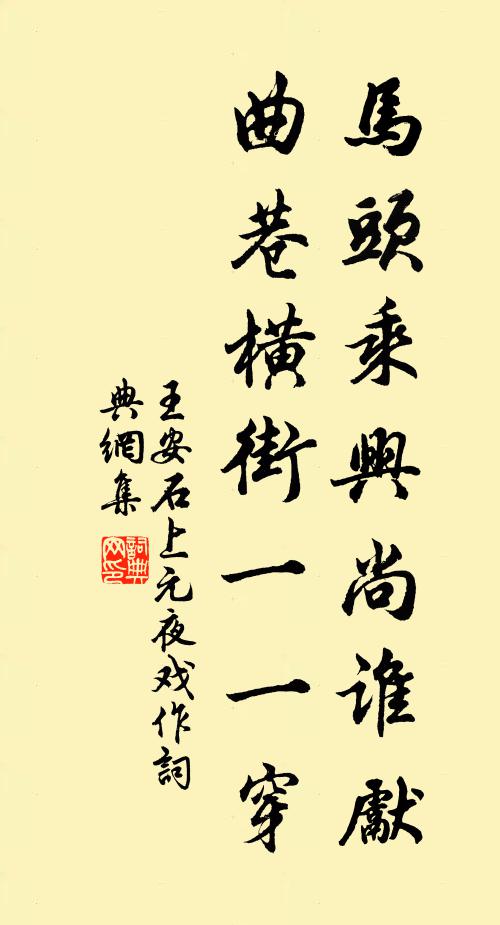 馬頭乘興尚誰獻
曲巷橫街一一穿
王安石上元夜戏作詞
典網集
詞典
网印